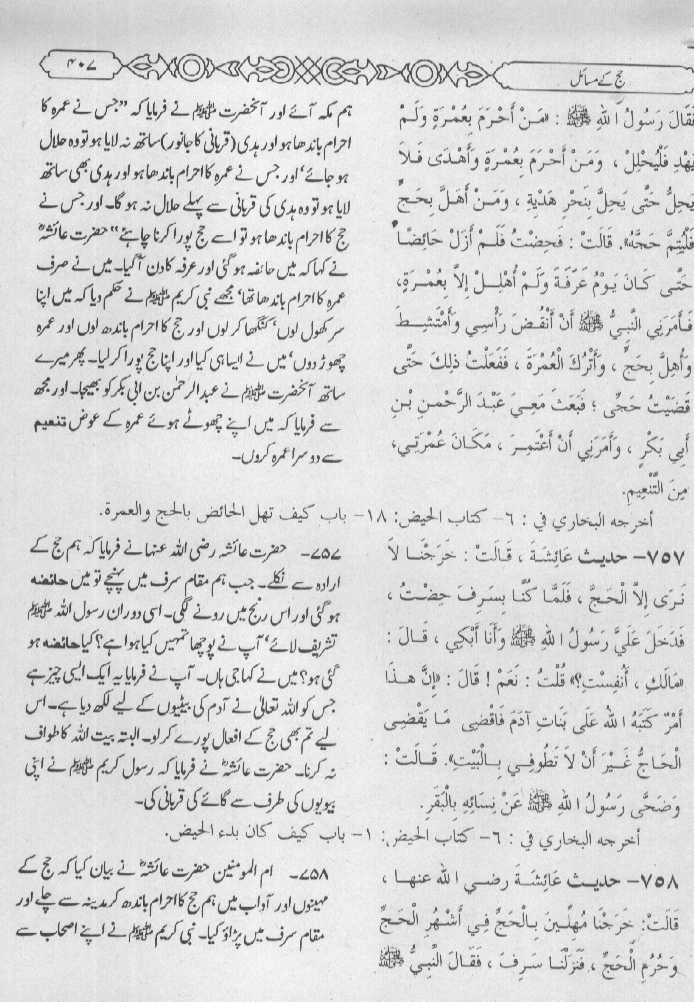 حج کے مسائل
۴۰۷
فَقَالَ رَسُولُ اللهِ ﷺ : «مَنْ أَحْرَمَ بِعُمْرَةٍ وَلَمْ
يُهْدِ فَلْيُحْلِلْ ، وَمَنْ أَحْرَمَ بِعُمْرَةٍ وَأَهْدَى فَلاَ
يَحِلُّ حَتَّى يَحِلَّ بِنَحْرِ هَدْيِهِ ، وَمَنْ أَهَلَّ بِحَجٍّ
فَلْيُتِمَّ حَجَّهُ». قَالَتْ : فَحِضْتُ فَلَمْ أَزَلْ حَائِضًا
حَتَّى كَانَ يَوْمُ عَرَفَةَ وَلَمْ أُهْلِلْ إِلاَّ بِعُمْرَةٍ،
فَأَمَرَنِي النَّبِيُّ ﷺ أَنْ أَنْقُضَ رَأْسِي وَأَمْتَشِطَ
وَأُهِلَّ بِحَجٍّ ، وَأَتْرُكَ الْعُمْرَةَ ، فَفَعَلْتُ ذلِكَ حَتَّى
قَضَيْتُ حَجِّى ؛ فَبَعَثَ مَعِيَ عَبْدَ الرَّحْمنِ بْنِ
أَبِي بَكْرٍ ، وَأَمَرَنِي أَنْ أَعْتَمِرَ ، مَكَانَ عُمْرَتِي،
مِنَ التَّنْعِيمِ.
ہم مکہ آئے اور آنحضرت ﷺ نے فرمایا کہ ”جس نے عمرہ کا
احرام باندھا ہو اور ہدی (قربانی کا جانور) ساتھ نہ لایا ہو تو وہ حلال
ہو جائے‘ اور جس نے عمرہ کا احرام باندھا ہو اور ہدی بھی ساتھ
لایا ہو تو وہ ہدی کی قربانی سے پہلے حلال نہ ہو گا۔ اور جس نے
حج کا احرام باندھا ہو تو اسے حج پورا کرنا چاہئے“ حضرت عائشہؓ
نے کہا کہ میں حائضہ ہو گئی اور عرفہ کا دن آ گیا۔ میں نے صرف
عمرہ کا احرام باندھا تھا‘ مجھے نبی کریم ﷺ نے حکم دیا کہ میں اپنا
سر کھول لوں‘ کنگھا کر لوں اور حج کا احرام باندھ لوں اور عمرہ
چھوڑ دوں‘ میں نے ایسا ہی کیا اور اپنا حج پورا کر لیا۔ پھر میرے
ساتھ آنحضرت ﷺ نے عبدالرحمن بن ابی بکر کو بھیجا۔ اور مجھ
سے فرمایا کہ میں اپنے چھوٹے ہوئے عمرہ کے عوض تنعیم
سے دوسرا عمرہ کروں۔
أخرجه البخاري في : ٦- كتاب الحيض: ١٨- باب كيف تهل الحائض بالحج والعمرة.
٧٥٧- حديث عَائِشَةَ ، قَالَتْ : خَرَجْنَا لاَ
نَرَى إِلاَّ الْحَجَّ ، فَلَمَّا كُنَّا بِسَرِفَ حِضْتُ ،
فَدَخَلَ عَلَيَّ رَسُولُ اللهِ ﷺ وَأَنَا أَبْكِي ، قَالَ :
«مَالَكِ ، أَنُفِسْتِ؟» قُلْتُ : نَعَمْ ! قَالَ : «إِنَّ هذَا
أَمْرٌ كَتَبَهُ اللهُ عَلَى بَنَاتِ آدَمَ فَاقْضِى مَا يَقْضِى
الْحَاجُّ غَيْرَ أَنْ لاَ تَطُوفِي بِالْبَيْتِ». قَالَتْ :
وَضَحَّى رَسُولُ اللهِ ﷺ عَنْ نِسَائِهِ بِالْبَقَرِ.
۷۵۷- حضرت عائشہ رضی اللہ عنہا نے فرمایا کہ ہم حج کے
ارادہ سے نکلے۔ جب ہم مقام سرف میں پہنچے تو میں حائضہ
ہو گئی اور اس رنج میں رونے لگی۔ اسی دوران رسول اللہ ﷺ
تشریف لائے‘ آپ نے پوچھا تمہیں کیا ہوا ہے؟ کیا حائضہ ہو
گئی ہو؟ میں نے کہا جی ہاں۔ آپ نے فرمایا یہ ایک ایسی چیز ہے
جس کو اللہ تعالیٰ نے آدم کی بیٹیوں کے لیے لکھ دیا ہے۔ اس
لیے تم بھی حج کے افعال پورے کر لو۔ البتہ بیت اللہ کا طواف
نہ کرنا۔ حضرت عائشہؓ نے فرمایا کہ رسول کریم ﷺ نے اپنی
بیویوں کی طرف سے گائے کی قربانی کی۔
أخرجه البخاري في : ٦- كتاب الحيض: ١- باب كيف كان بدء الحيض.
٧٥٨- حديث عَائِشَةَ رضي الله عنها ،
قَالَتْ: خَرَجْنَا مُهِلِّينَ بِالْحَجِّ فِي أَشْهُرِ الْحَجِّ
وَحُرُمِ الْحَجِّ ، فَنَزَلْنَا سَرِفَ ، فَقَالَ النَّبِيُّ ﷺ
۷۵۸- ام المومنین حضرت عائشہؓ نے بیان کیا کہ حج کے
مہینوں اور آداب میں ہم حج کا احرام باندھ کر مدینہ سے چلے اور
مقام سرف میں پڑاؤ کیا۔ نبی کریم ﷺ نے اپنے اصحاب سے